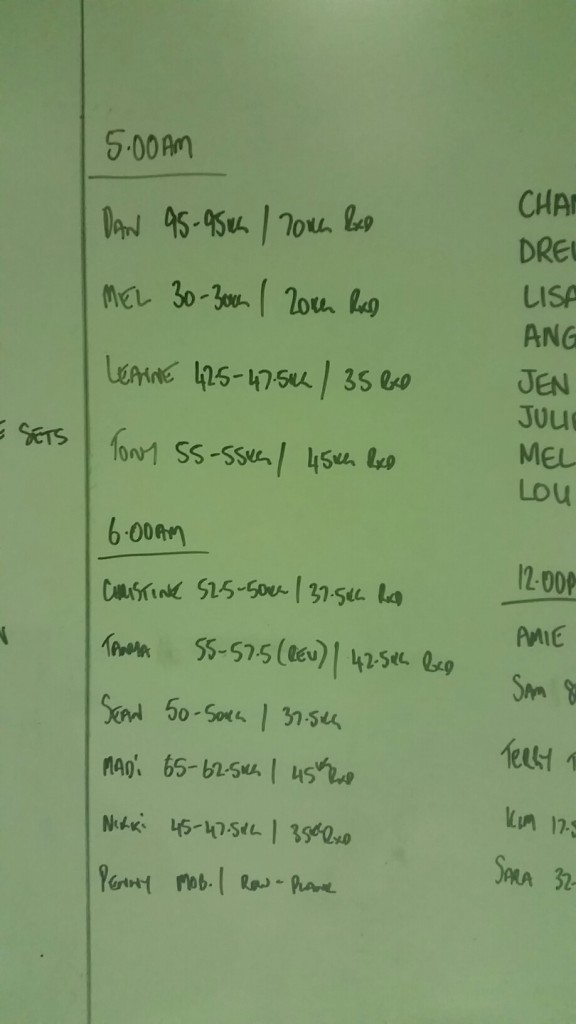 5.00AM
DAN 95-95KG / 70KG RXD
MEL 30-30KG / 20KG RXD
LEANNE 42.5-47.5KG / 35 RXD
TONY 55-55KG / 45KG RXD
6.00AM
CHRISTINE 52.5-50KG / 37.5KG RXD
TANIA 55-57.5 (REV) / 42.5KG RXD
SEAN 50-50KG / 37.5KG
MADi 65-62.5KG / 45KG RXD
NIKKi 45-47.5KG / 35KG RXD
PENNY MOB. / ROW-PLANK
E SETS
N
CHAN
DREW
LISA
ANG
JEN
JULI
MEL
LOU
12.00P
AMIE
SAM 8
TERRY T
KIM 17.5
SARA 32-